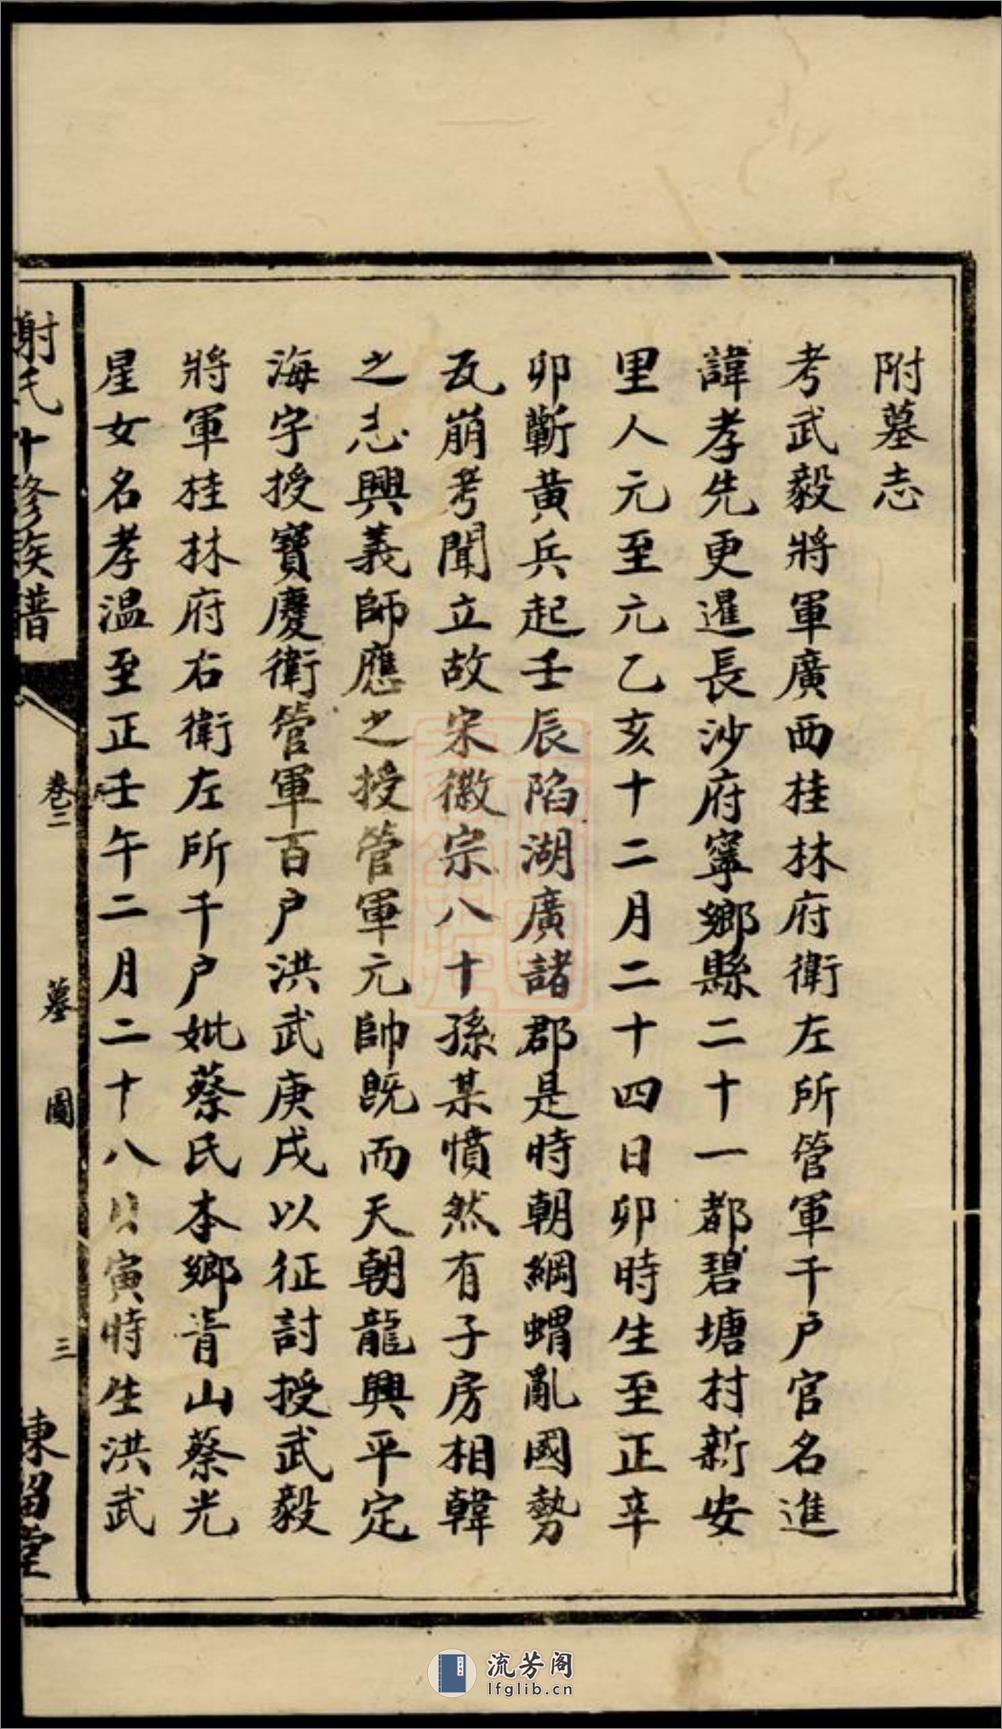 附墓志
考武毅將軍廣西桂林府衛左所管軍千户官名進
諱孝先更暹長沙府寧鄉縣二十一都碧塘村新安
里人元至元乙亥十二月二十四日卯時生至正辛
卯蘄黃兵起壬辰陷湖廣諸郡是時朝綱蝟亂國勢
瓦崩考聞立故宋徽宗八十孫某憤然有子房相韓
之志興義師應之授管軍元帥既而天朝龍興平定
海宇授寶慶衛管軍百户洪武庚戌以征討授武毅
將軍桂林府右衛左所千户妣蔡氏本鄉青山蔡光
星女名孝温至正壬午二月二十八日寅時生洪武
謝氏十修族譜
卷三
墓圖
三
東山堂
流芳阁
lfglib.cn